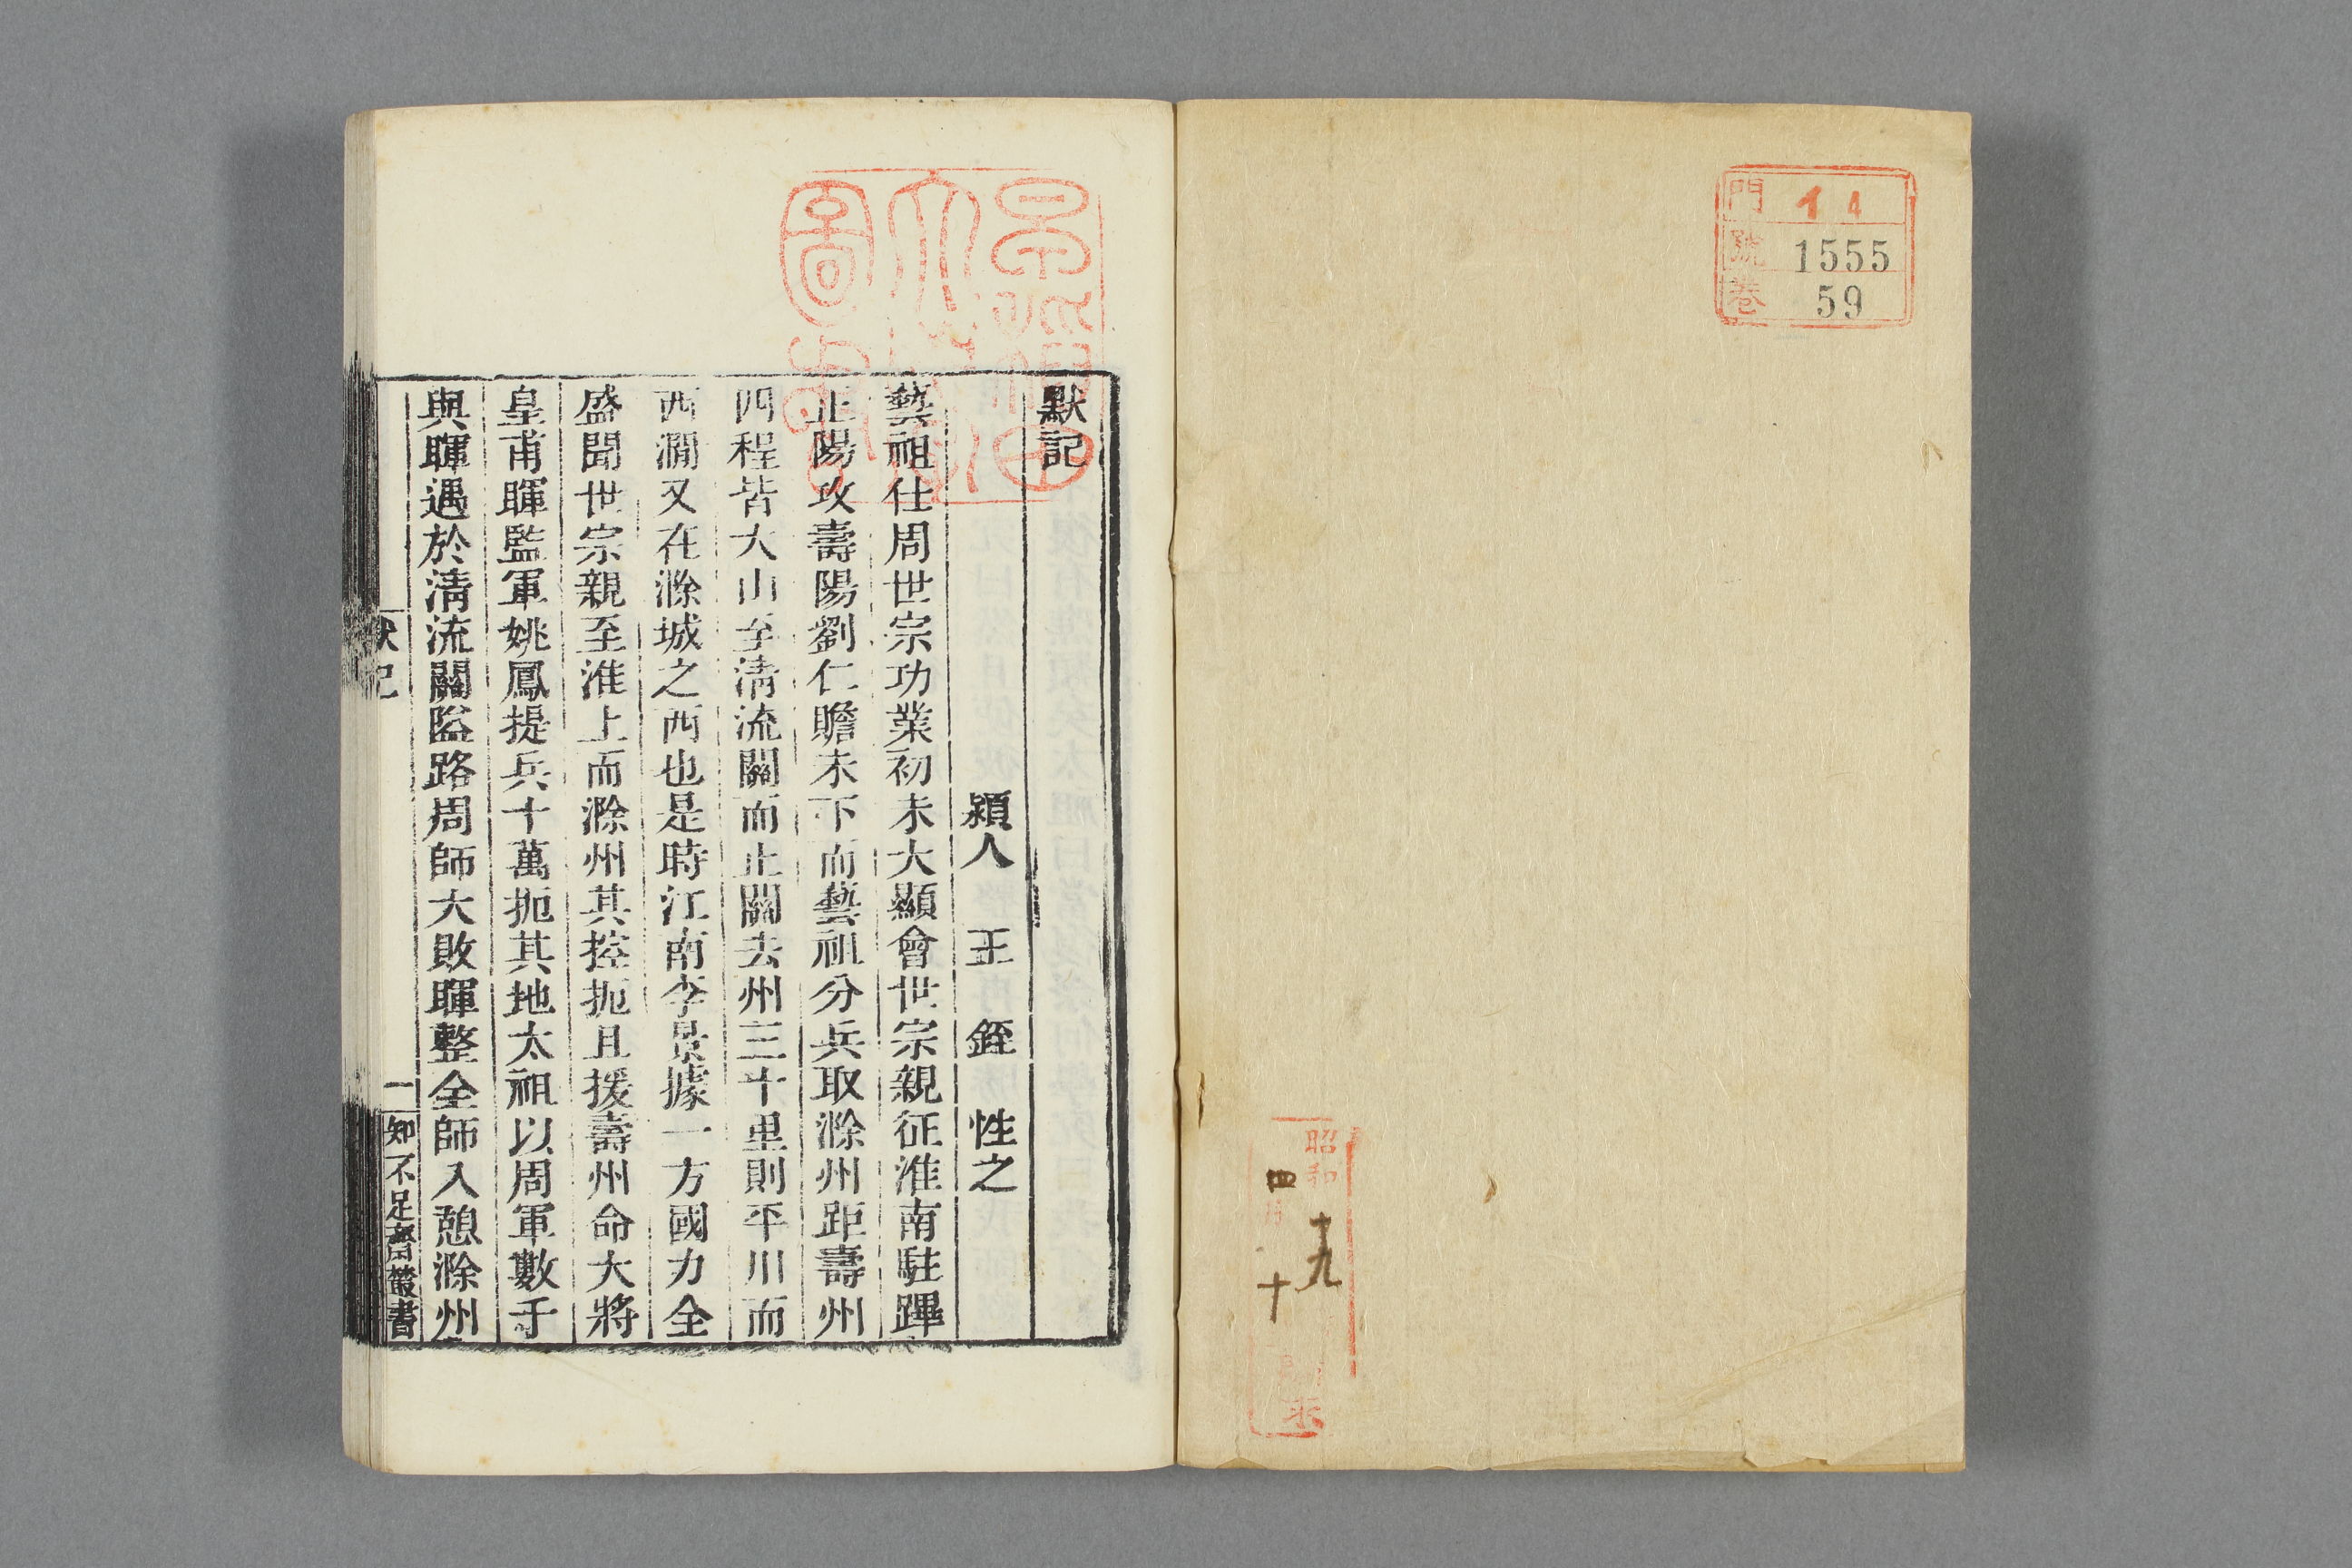 門 14
號 1555
卷 59
昭和 十九
四月 十
默記
潁人 王 銍 性之
藝祖仕周世宗功業初未大顯會世宗親征淮南駐蹕
正陽攻壽陽劉仁贍未下而藝祖分兵取滁州距壽州
四程皆大山至淸流關而止關去州三十里則平川而
西澗又在滁城之西也是時江南李景據一方國力全
盛聞世宗親至淮上而滁州其控扼且援壽州命大將
皇甫暉監軍姚鳳提兵十萬扼其地太祖以周軍數千
與暉遇於淸流關隘路周師大敗暉整全師入憩滁州
默記
一
知不足齋叢書